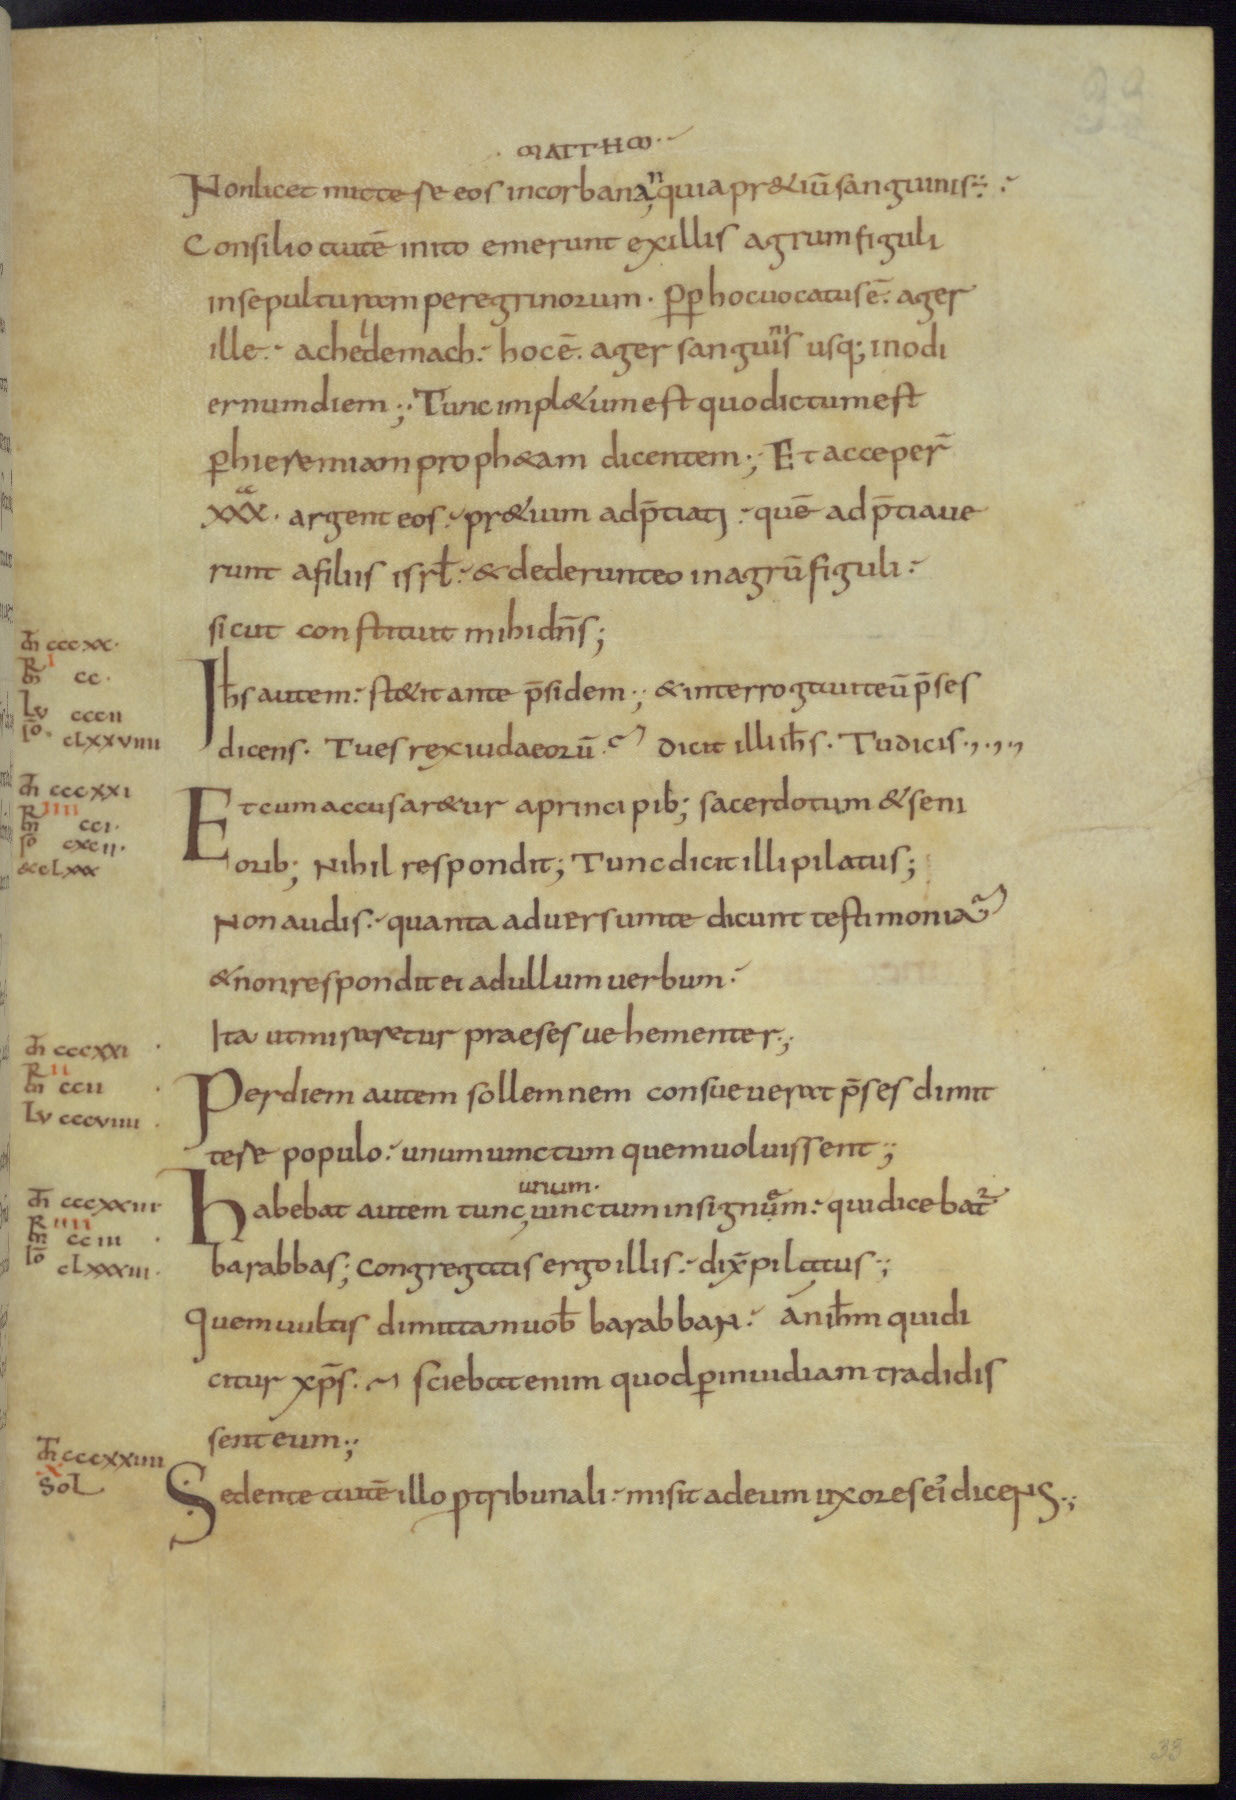 · MATTHEO ·
Non licet mittere eos in corbanan quia pr&iū sanguinis
Consilio autē inito emerunt ex illis agrum figuli
in sepulturam peregrinorum · ꝓp hoc uocatus ē· ager
ille· acheldemach· hoc ē· ager sanguinis usq; in odi
ernum diem; Tunc impl&um est quo dictum est
ꝑ hieremiam proph&am dicentem; Et acceper̄
xxx· argenteos· pr&ium adp̄tiati· quē adp̄tiaue
runt a filiis isrł· & dederunt eo in agrū figuli·
sicut constituit mihi dn̄s;
Ihs autem· st&it ante p̄sidem; & interrogauit eū p̄ses
dicens· Tu es rex iudaeorū· dicit illi ih̄s· Tu dicis·,·,·,
Et cum accusar&ur a principib; sacerdotum & seni
orib; Nihil respondit; Tunc dicit illi pilatus;
Non audis· quanta aduersum te dicunt testimonia
& non respondit ei ad ullum uerbum·
Ita ut miraretur praeses uehementer;
Per diem autem sollemnem consueuerat p̄ses dimit
tere populo· unum uinctum quem uoluissent;
unum·
habebat autem tunc, uinctum insignem· qui dicebat²
barabbas; Congregatis ergo illis· dix̄ pilatus;
Quem uultis dimittam uob̄ barabban· an ih̄m qui di
citur xp̄s· sciebat enim quod ꝑ inuidiam tradidis
sent eum;
Sedente autē illo ꝓ tribunali· misit ad eum uxore sei dicens;
m̄ cccxx·
R I
m̄ cc·
Lu cccii
Iō· cLxxviiii
m̄ cccxxi
R IIII
m̄ cci·
Iō cxcii·
& cLxx
m̄ cccxxi
R II
m̄ ccii
Lu cccviiii
m̄ cccxxiii
R IIII
m̄ cciii
Iō cLxxxiii·
m̄ cccxxiiii
x
SoL
33